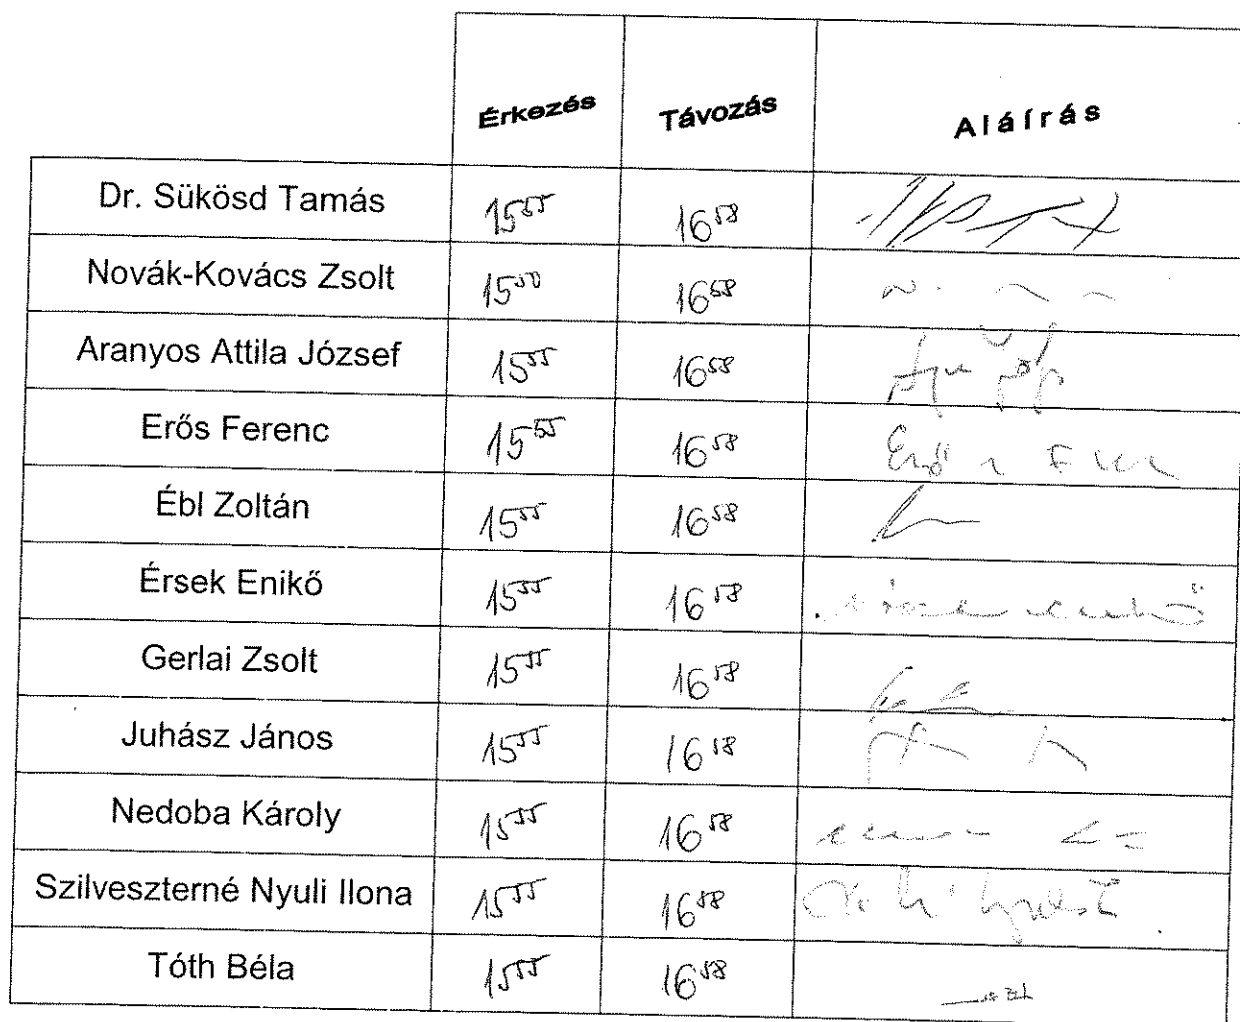 Érkezés Távozás Aláírás
Dr. Sükösd Tamás 15⁵⁵ 16⁵⁸
Novák-Kovács Zsolt 15⁵⁰ 16⁵⁸
Aranyos Attila József 15⁵⁵ 16⁵⁸
Erős Ferenc 15⁵⁵ 16⁵⁸
Ébl Zoltán 15⁵⁵ 16⁵⁸
Érsek Enikő 15⁵⁵ 16⁵⁸
Gerlai Zsolt 15⁵⁵ 16⁵⁸
Juhász János 15⁵⁵ 16⁵⁸
Nedoba Károly 15⁵⁵ 16⁵⁸
Szilveszterné Nyuli Ilona 15⁵⁵ 16⁵⁸
Tóth Béla 15⁵⁵ 16⁵⁸